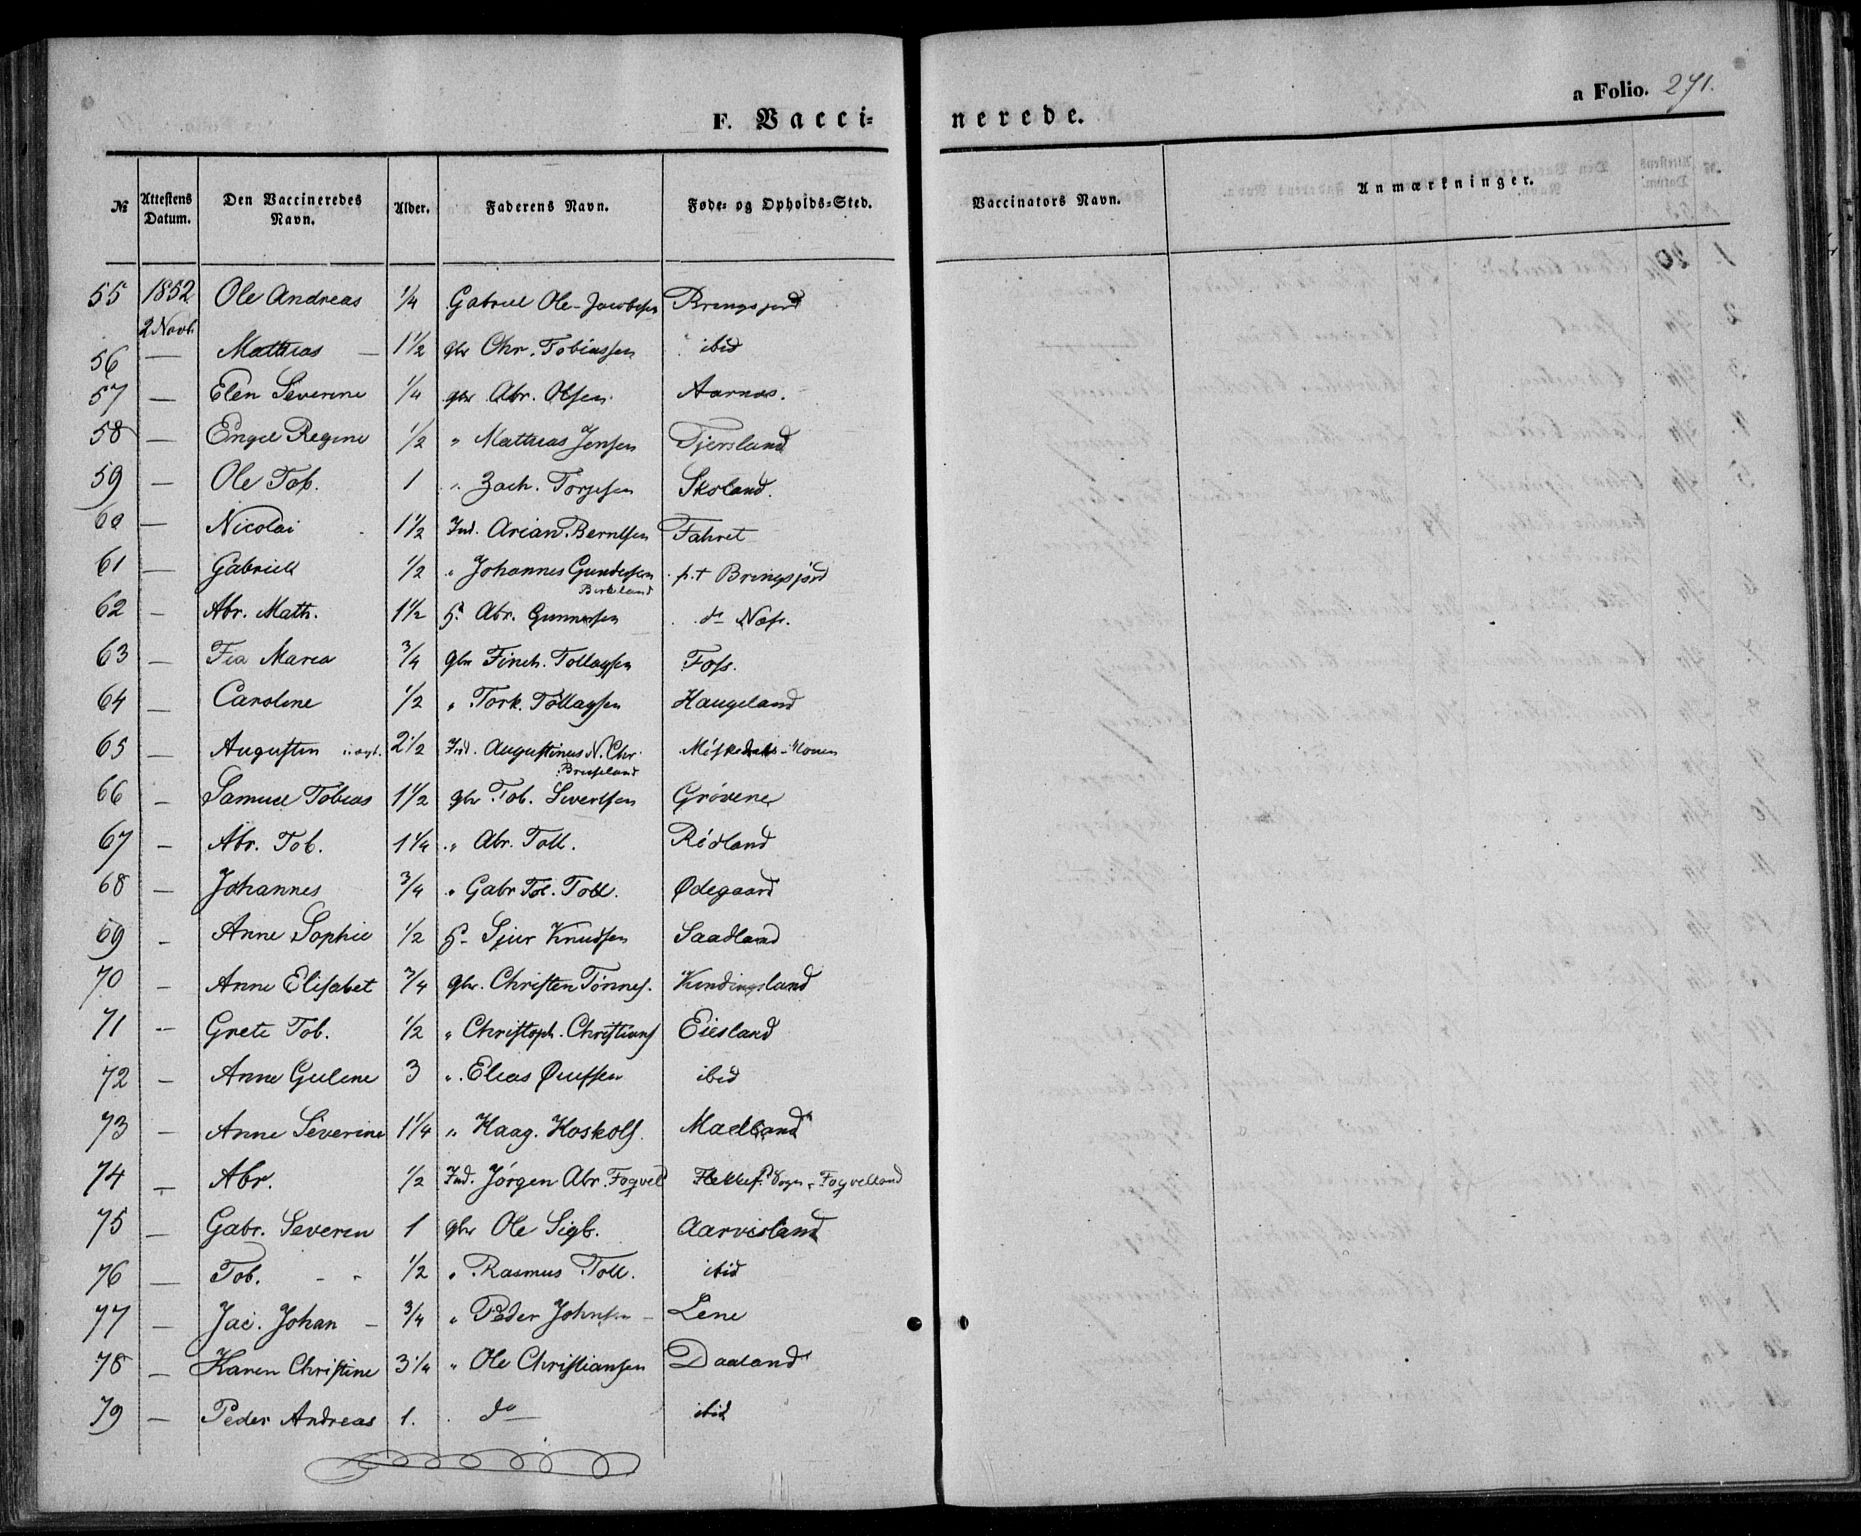 F. Vacci= nerede.
a Folio. 271.
№ Attestens Datum. Den Vaccineredes Navn. Alder. Faderens Navn. Føde- og Opholds-Sted. Vaccinators Navn. Anmærkninger.
55 1852 2 Novb. Ole Andreas 1/4 Gabriel Ole-Jacobsen Bringsjord
56 — Mathias — 1 1/2 gbr Chr. Tobiassen ibid
57 — Elen Severine 1/4 gbr Abr. Olsen Aarnæs.
58 — Engel Regine 1/2 " Mathias Jensen Tjersland
59 — Ole Tob. 1 " Zach. Torjesen Skoland.
60 — Nicolai 1 1/2 Ind. Arian Berntsen Fahret
61 — Gabriell 1/2 " Johannes Gundersen Birkeland p.t Bringsjord
62 — Abr. Math. 1 1/2 Abr. Gunnersen do Næss.
63 — Fia Maria 3/4 gbr Finch. Tollagsen Foss.
64 — Caroline 1/2 " Tork. Tollagsen Haugeland
65 — Augustin 2 1/2 Ind. Augustinus N. Chr.
66 — Samuel Tobias 1 1/2 gbr Tob. Sivertsen Grøvene
67 — Abr. Tob. 1 1/4 " Abr. Toll. Rødland
68 — Johannes 3/4 " Gabr Tol. Toll. Ødegaard
69 — Anne Sophie 1/2 Sjur Knudsen Saadland
70 Anne Elisabet 3/4 gbr. Christen Tønnes. Kindingsland
71 — Grete Tob. 1/2 " Christoph. Christians Eiesland
72 — Anne Gulene 3 " Elias ibid
73 — Anne Severine 1 1/4 " Haag. Hoskols. Madland
74 — Abr. 1/2 Ind. Jørgen Abr. Fogvel Flekkef. Sogn - Fogvelland
75 — Gabr. Severen 1 gbr Ole Sigb. Aarvesland
76 — Tob. - - 1/2 " Rasmus Toll. ibid
77 — Jac. Johan - 3/4 " Peder Johnsen - Lene
78 — Karen Christine 3 1/4 " Ole Christiansen Daaland
79 — Peder Andreas 1. do — ibid